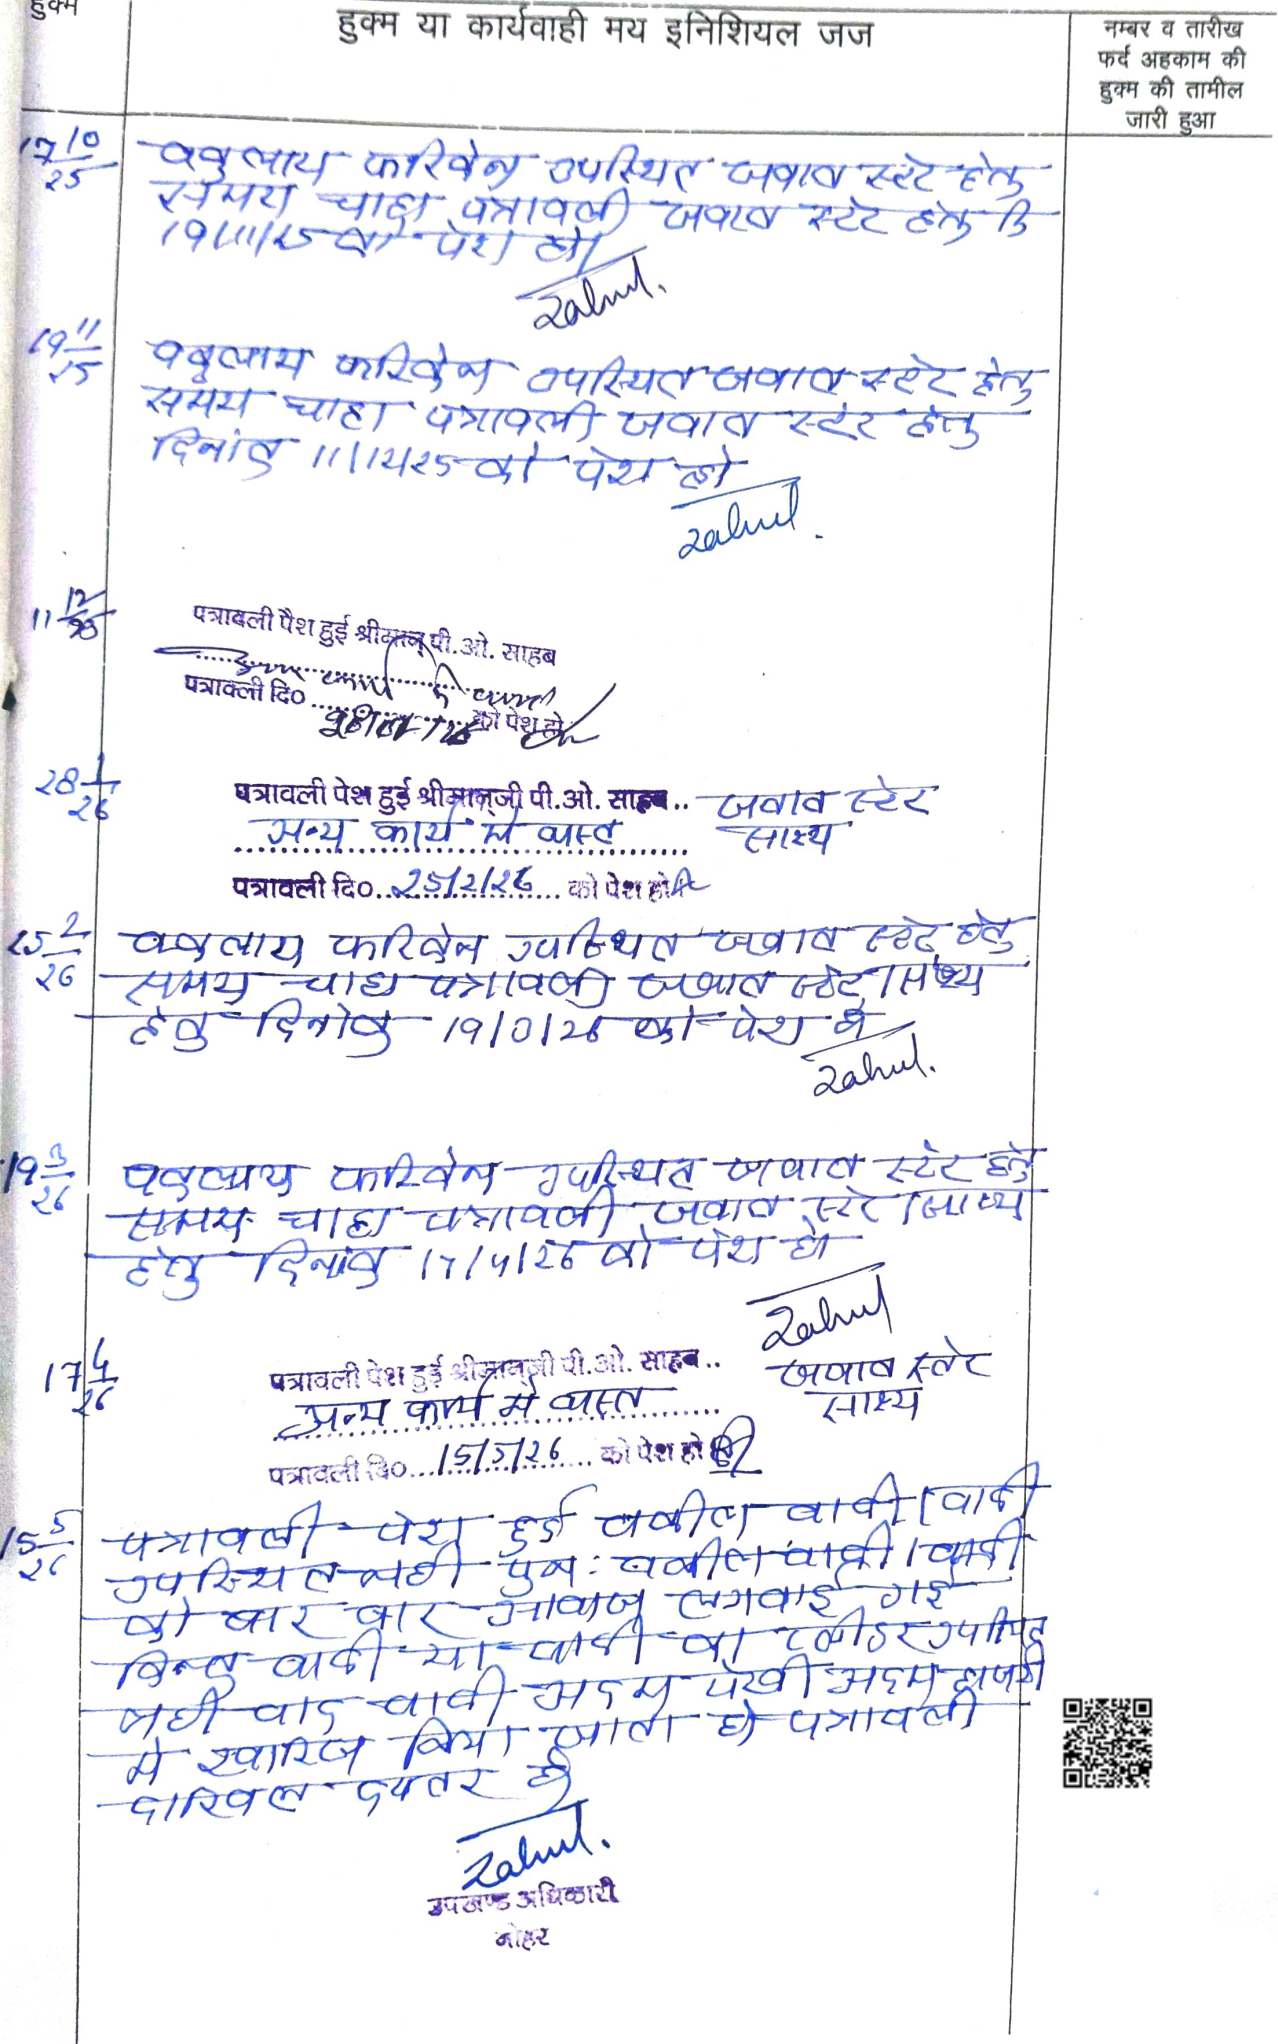 हुक्म
हुक्म या कार्यवाही मय इनिशियल जज
नम्बर व तारीख
फर्द अहकाम की
हुक्म की तामील
जारी हुआ
17 10/25
वकुलाय फरिकेन उपस्थित जवाब स्टे हेतु
समय चाहा पत्रावली जवाब स्टे हेतु दि
19/11/25 को पेश हो
19 11/25
वकुलाय फरिकेन उपस्थित जवाब स्टे हेतु
समय चाहा पत्रावली जवाब स्टे हेतु
दिनांक 11/12/25 को पेश हो
11 12/25
पत्रावली पेश हुई श्रीमान् पी.ओ. साहब
पत्रावली दि० को पेश हो
28 1/26
पत्रावली पेश हुई श्रीमान्जी पी.ओ. साहब.. जवाब स्टे
अन्य कार्य में व्यस्त साक्ष्य
पत्रावली दि० 25/2/26 को पेश हो
25 2/26
वकुलाय फरिकेन उपस्थित जवाब स्टे हेतु
समय चाहा पत्रावली जवाब स्टे/साक्ष्य
हेतु दिनांक 19/3/26 को पेश हो
19 3/26
वकुलाय फरिकेन उपस्थित जवाब स्टे हेतु
समय चाहा पत्रावली जवाब स्टे/साक्ष्य
हेतु दिनांक 17/4/26 को पेश हो
17 4/26
पत्रावली पेश हुई श्रीमान्जी पी.ओ. साहब.. जवाब स्टे
अन्य कार्य में व्यस्त साक्ष्य
पत्रावली दि० 15/5/26 को पेश हो
15 5/26
पत्रावली पेश हुई वकील वादी/वादी
उपस्थित नही पुन: वकील वादी/वादी
को बार बार आवाज लगवाई गई
किन्तु वादी या वादी का प्लीडर उपस्थित
नही वाद वादी अदम पेरवी अदम हाजरी
मे खारिज किया जाता है पत्रावली
दाखिल दफ्तर हो
उपखण्ड अधिकारी
नोहर